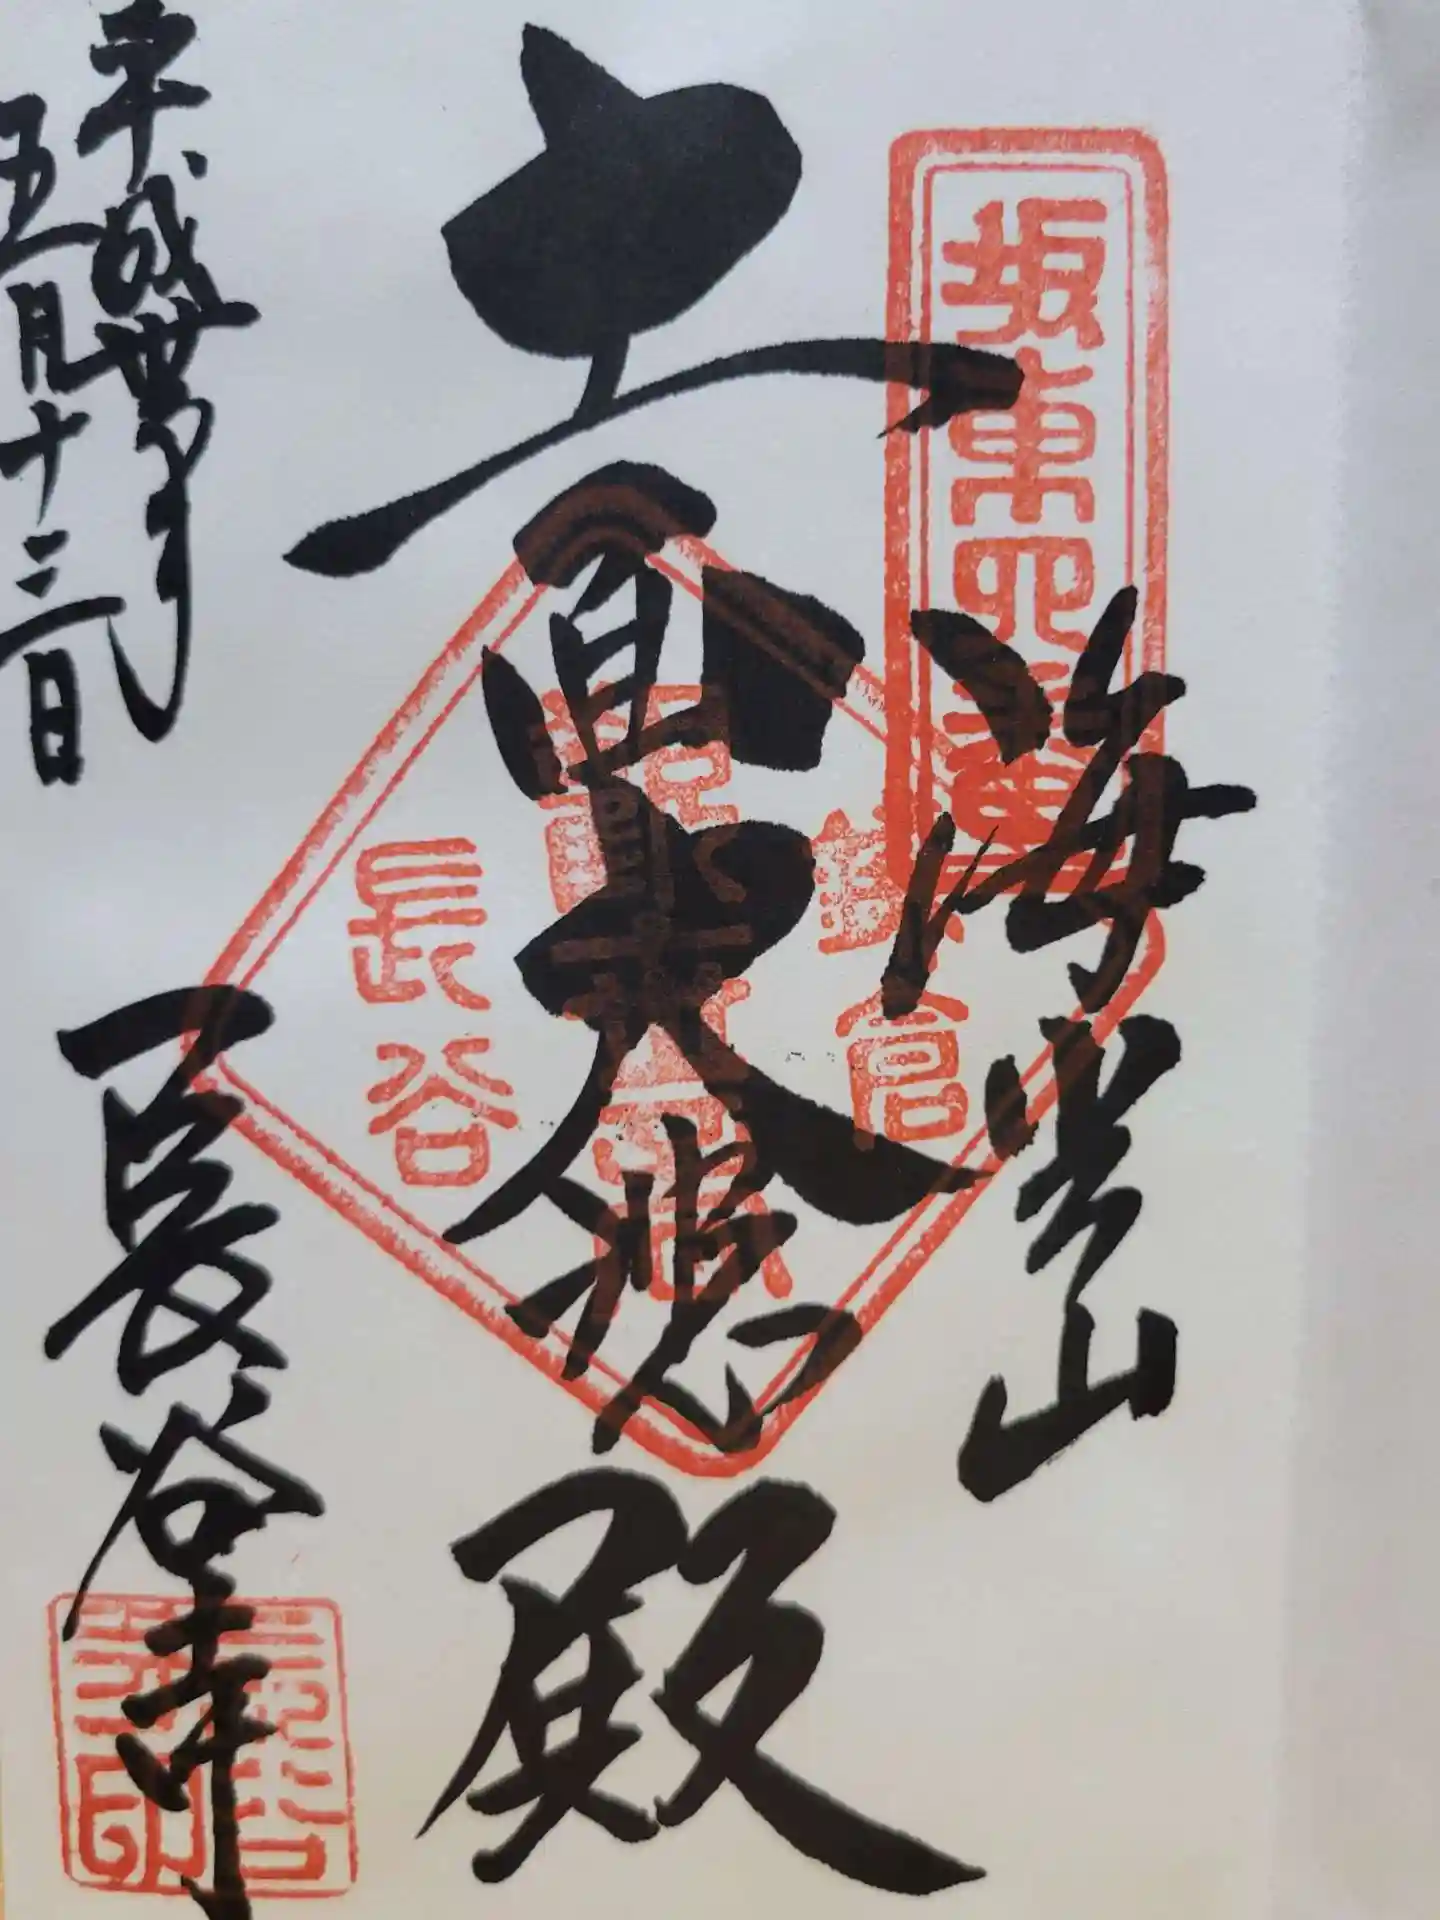 坂東四番
海光山
十一面大悲殿
鎌倉
長谷
平成卅年
五月十三日
長谷寺